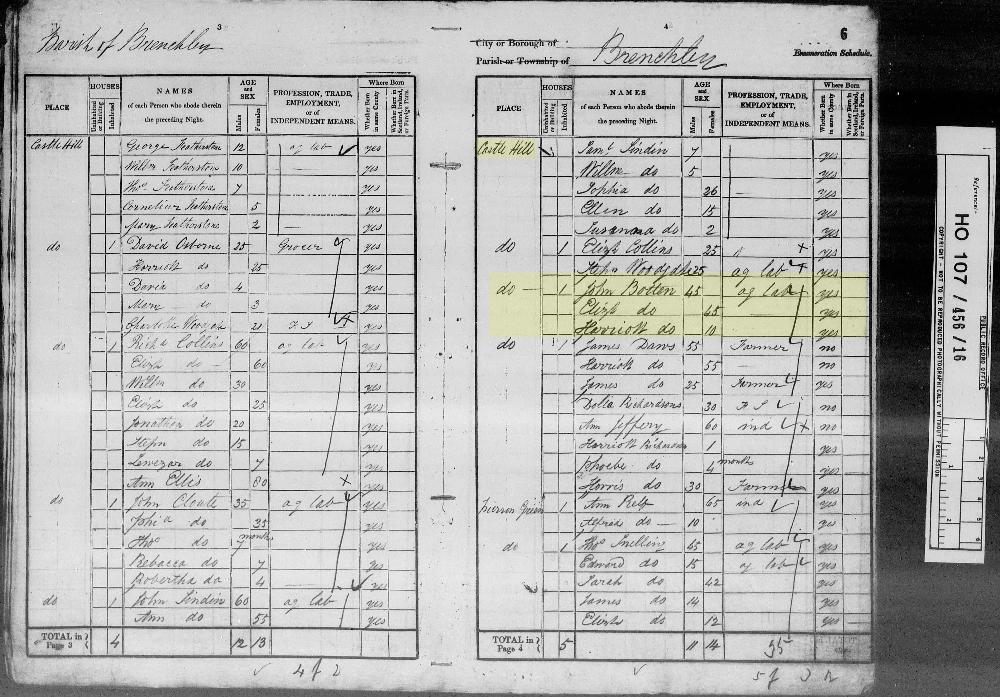 3
Parish of Brenchley
PLACE HOUSES Uninhabited or Building Inhabited
NAMES of each Person who abode therein the preceding Night.
AGE and SEX Males Females
PROFESSION, TRADE, EMPLOYMENT, or of INDEPENDENT MEANS.
Where Born Whether Born in same County Whether Born in Scotland, Ireland, or Foreign Parts.
Castle Hill George Featherstone 12 ag lab yes
Willm Featherstone 10 — yes
Thos Featherstone 7 yes
Cornelius Featherstone 5 yes
Mary Featherstone 2 yes
do 1 David Osborne 25 Grocer yes
Harriott do 25 yes
David do 4 yes
Mary do 3 yes
Charlotte 21 F S yes
do 1 Richd Collins 60 ag lab yes
Elizh do — 60 yes
Willm do 30 yes
Elizh do 25 yes
Jonathan do 20 yes
Stepn do 15 yes
do 7 yes
Ann Ellis 80 yes
do 1 John Cloute 35 ag lab yes
do 35 yes
Thos do 7 months yes
Rebacca do 7 yes
Robertha do 4 — yes
do 1 John Lindin 60 ag lab yes
Ann do 55 yes
TOTAL in Page 3 4 12 13
4 f 2
4
6
City or Borough of
Enumeration Schedule.
Parish or Township of Brenchley
PLACE HOUSES Uninhabited or Building Inhabited
NAMES of each Person who abode therein the preceding Night.
AGE and SEX Males Females
PROFESSION, TRADE, EMPLOYMENT, or of INDEPENDENT MEANS.
Where Born Whether Born in same County Whether Born in Scotland, Ireland, or Foreign Parts.
Castle Hill Saml Lindin 7 yes
Willm do 5 yes
Sophia do 26 — yes
Ellen do 15 yes
Susanna do 2 yes
do 1 Elizh Collins 25 yes
Stepn Woodgate 25 ag lab yes
do — 1 John Botten 45 ag lab yes
Elizh do 45 yes
Harriott do 10 yes
do 1 James Daws 55 Farmer no
Harriott do 55 — no
James do 25 Farmer yes
Delia Richardsons 30 F S no
Ann Jeffery 60 ind no
Harriott Richardson 1
Phoebe do 4 month yes
Horris do 30 Farmer yes
Green 1 Ann 65 ind yes
Alfred do — 10 yes
do 1 Thos Snelling 45 ag lab yes
Edward do 15 ag lab yes
Sarah do 42 yes
James do 14 yes
Elizh do 12 yes
TOTAL in Page 4 5 11 14
35
5 f 3 2
Reference:-
HO 107/456/16
PUBLIC RECORD OFFICE
COPYRIGHT - NOT TO BE REPRODUCED PHOTOGRAPHICALLY WITHOUT PERMISSION